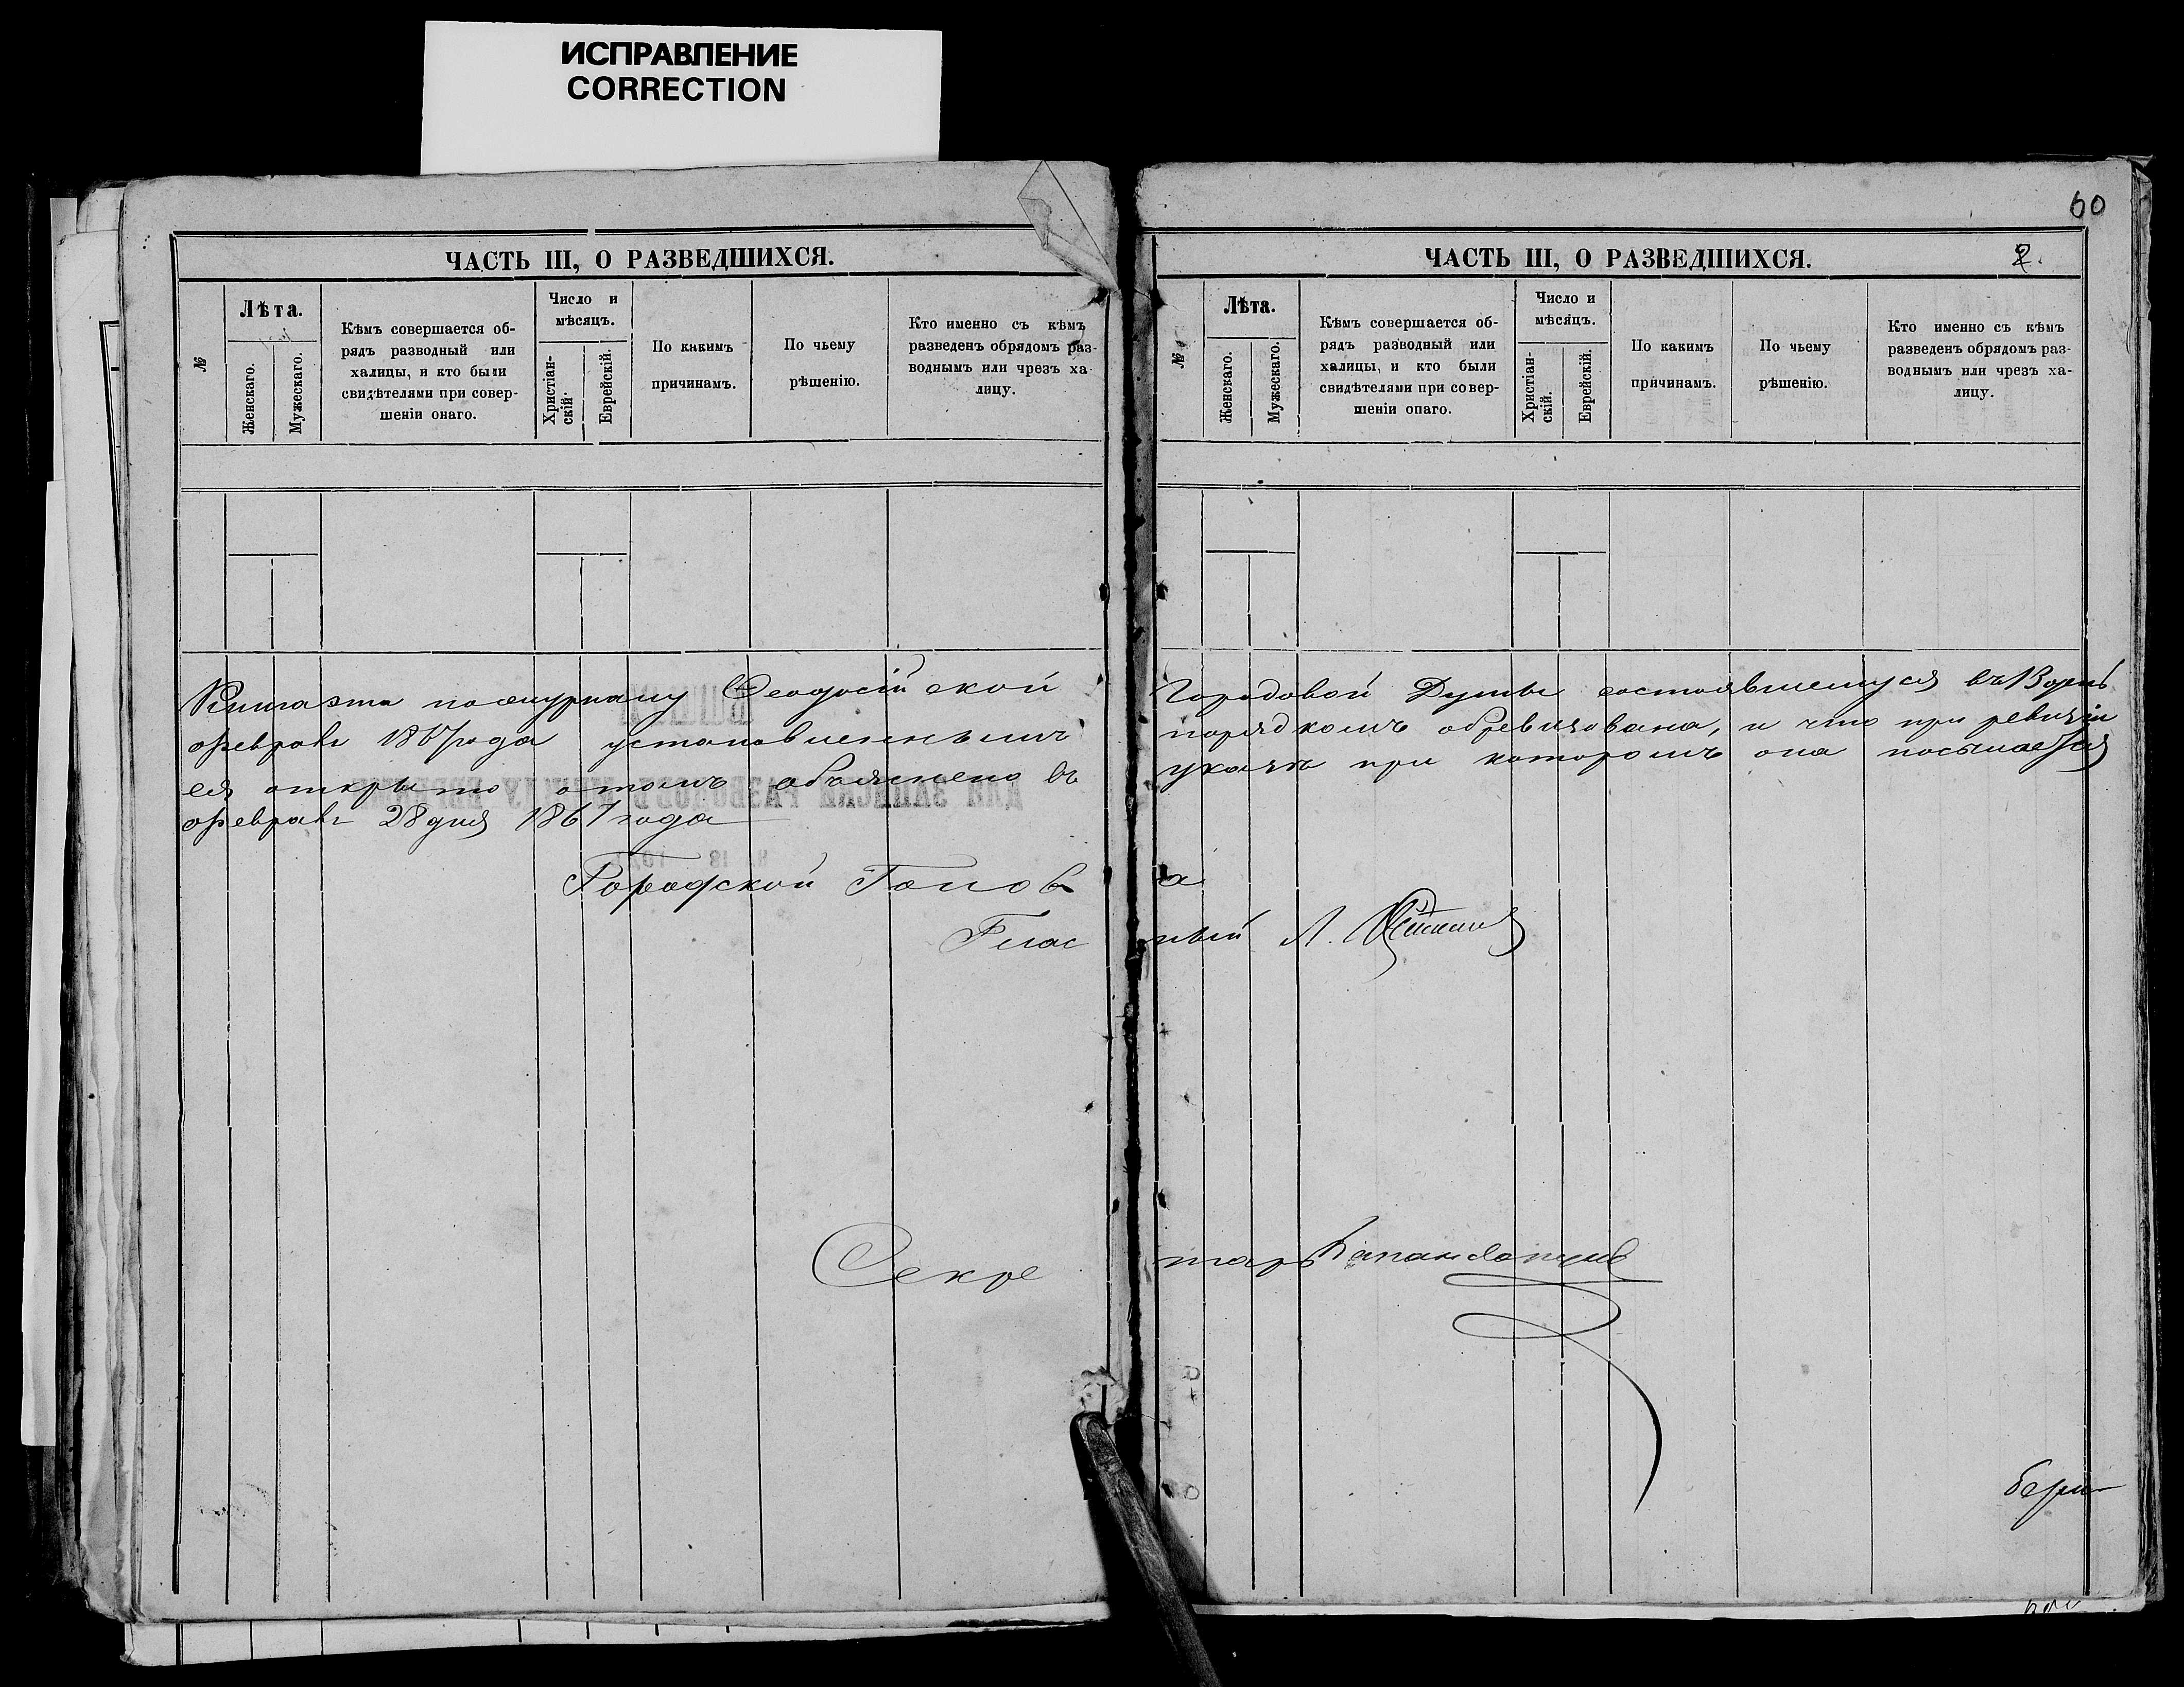 ИСПРАВЛЕНИЕ
CORRECTION
60
ЧАСТЬ III, О РАЗВЕДШИХСЯ.
№
Лѣта.
Женскаго.
Мужескаго.
Кѣмъ совершается об-
рядъ разводный или
халицы, и кто были
свидѣтелями при совер-
шеніи онаго.
Число и
мѣсяцъ.
Христіан-
скій.
Еврейскій.
По какимъ
причинамъ.
По чьему
рѣшенію.
Кто именно съ кѣмъ
разведенъ обрядомъ раз-
воднымъ или чрезъ ха-
лицу.
ЧАСТЬ III, О РАЗВЕДШИХСЯ.
2.
№
Лѣта.
Женскаго.
Мужескаго.
Кѣмъ совершается об-
рядъ разводный или
халицы, и кто были
свидѣтелями при совер-
шеніи онаго.
Число и
мѣсяцъ.
Христіан-
скій.
Еврейскій.
По какимъ
причинамъ.
По чьему
рѣшенію.
Кто именно съ кѣмъ
разведенъ обрядомъ раз-
воднымъ или чрезъ ха-
лицу.
Книга эта по журналу Ѳеодосійской Городовой Думы состоявшемуся въ
февраля 1867 года установленнымъ порядкомъ обревизована, и что при ревизіи
ея открыто о томъ объяснено въ указѣ при которомъ она посылается
февраля 28 дня 1867 года
Городской Голова
Гласный Л.
Секретарь